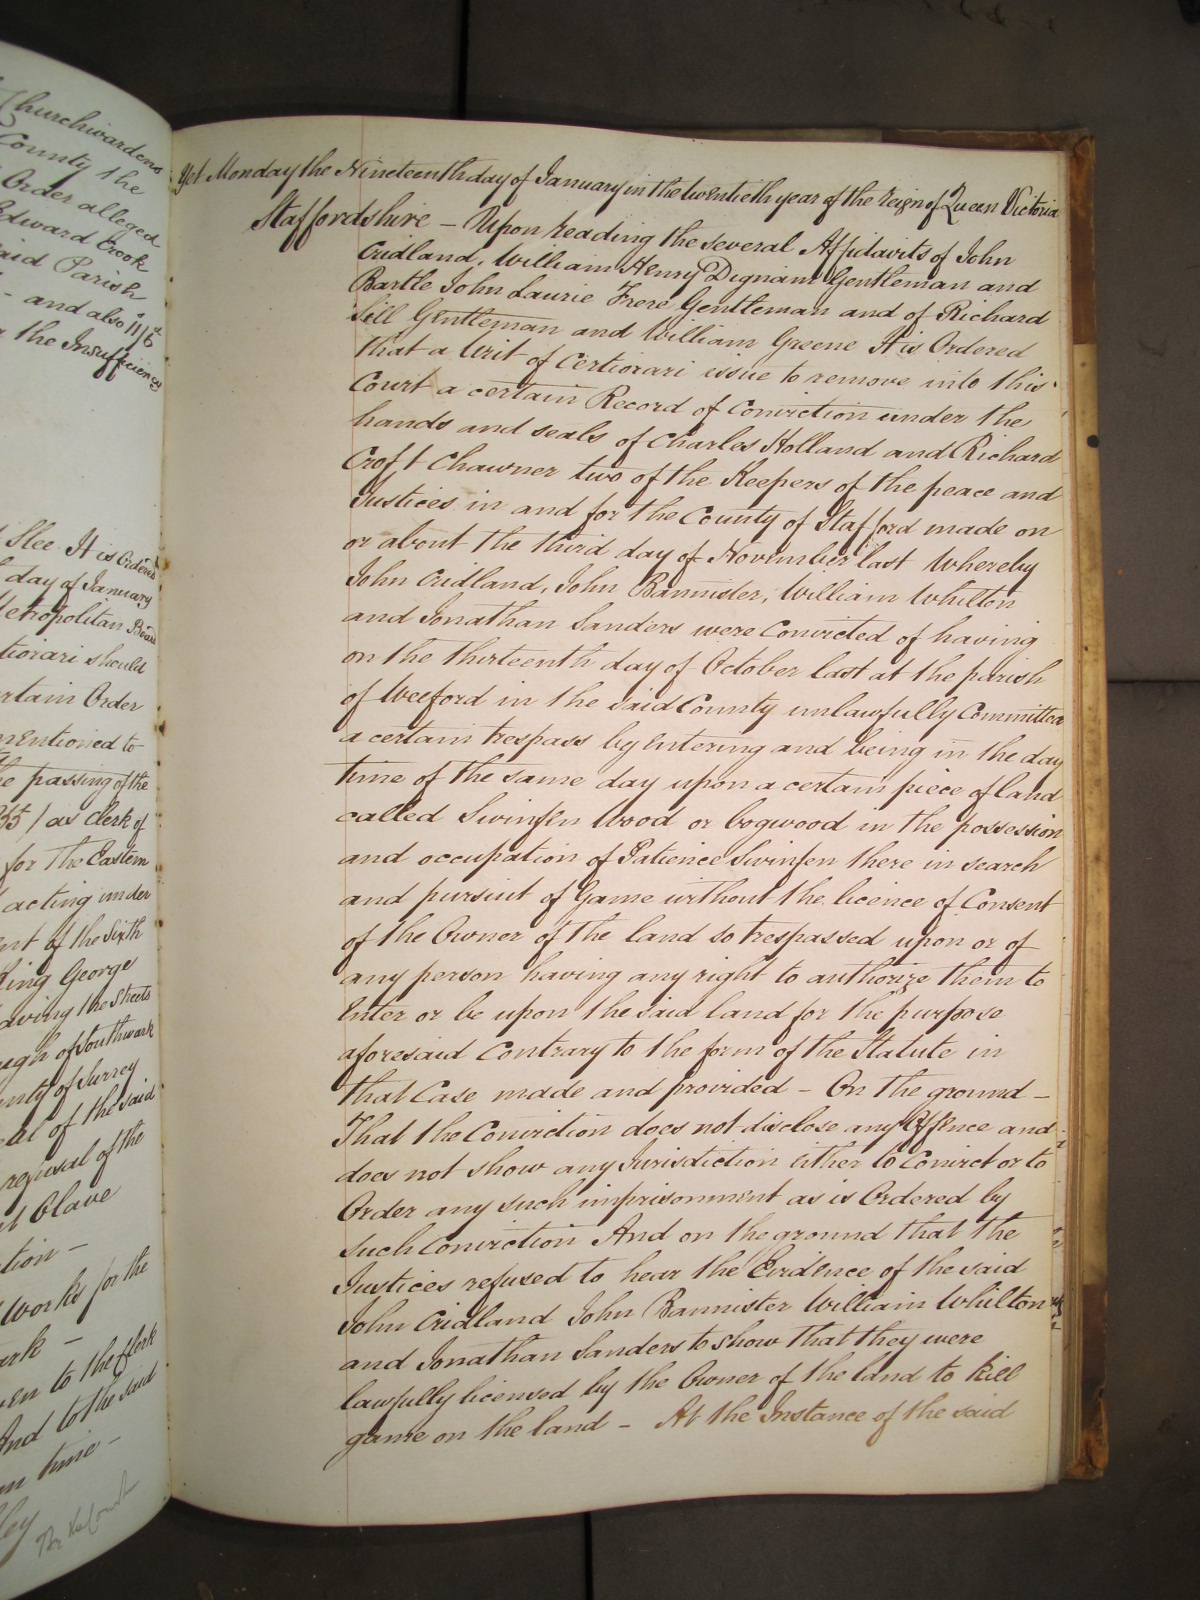 Churchwardens
County the
Order alleged
Edward Crook
said Parish
- and also 11/6
the Insufficiency
Slee. It is Ordered
day of January
Metropolitan Board
tiorari should
rtain Order
mentioned to
he passing of the
as Clerk of
for The Eastern
acting under
ent of the Sixth
King George
aving the Streets
ugh of Southwark
unty of Surrey
al of the said
refusal of the
Olave
tion -
Works for the
ark -
en to the Clerk
And to the said
time -
ley
Yet Monday the Nineteenth day of January in the twentieth year of the reign of Queen Victoria
Staffordshire - Upon reading the several Affidavits of John
Cridland, William Henry Dignam Gentleman and
Bartle John Laurie Frere Gentleman and of Richard
Sill Gentleman and William Greene It is Ordered
that a Writ of Certiorari issue to remove into this
Court a certain Record of Conviction under the
hands and seals of Charles Holland and Richard
Croft Chawner two of the Keepers of the peace and
Justices in and for the County of Stafford made on
or about the third day of November last Whereby
John Cridland, John Bannister, William Whilton
and Jonathan Sanders were Convicted of having
on the thirteenth day of October last at the parish
of Weeford in the said County unlawfully Committed
a certain trespass by Entering and being in the day
time of the same day upon a certain piece of land
called Swinfen Wood or Bogwood in the possession
and occupation of Patience Swinfen there in search
and pursuit of Game without the licence of Consent
of the Owner of the land so trespassed upon or of
any person having any right to authorize them to
Enter or be upon the said land for the purpose
aforesaid Contrary to the form of the Statute in
that Case made and provided - On the ground -
That the Conviction does not disclose any Offence and
does not show any Jurisdiction Either to Convict or to
Order any such imprisonment as is Ordered by
such Conviction And on the ground that the
Justices refused to hear the Evidence of the said
John Cridland John Bannister William Whilton
and Jonathan Sanders to show that they were
lawfully licensed by the Owner of the land to kill
game on the land - At the Instance of the said